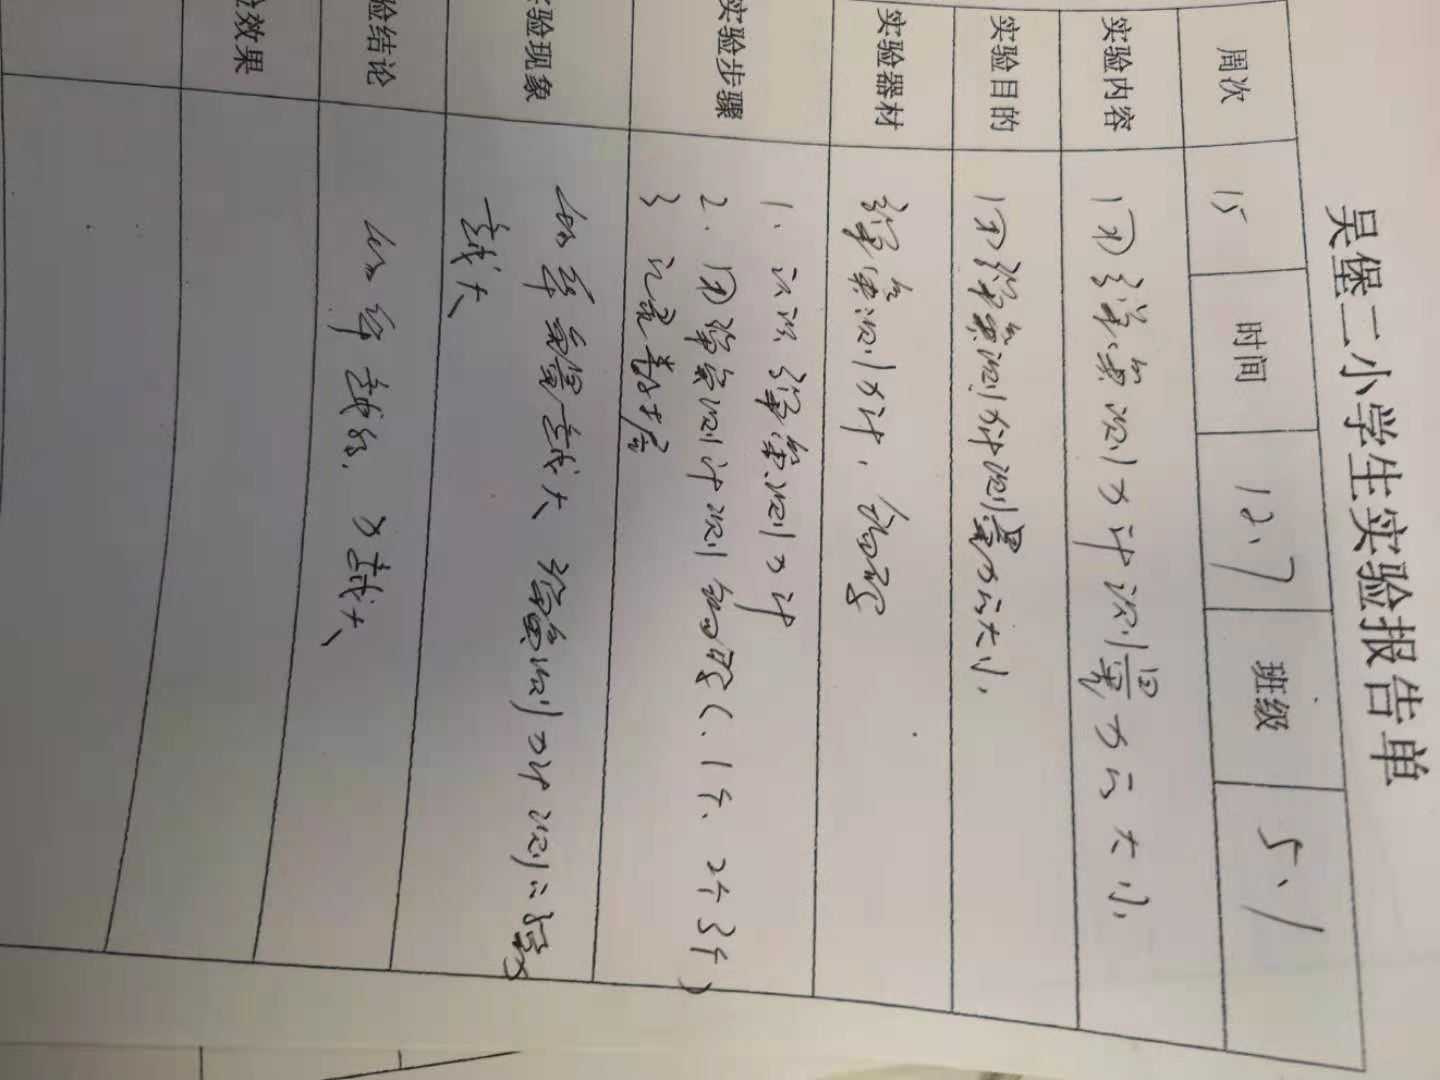 吴堡二小学生实验报告单
周次 15 时间 12.7 班级 5.1
实验内容 用弹簧测力计测量力的大小.
实验目的 用弹簧测力计测量力的大小.
实验器材 弹簧测力计，钩码
实验步骤 1、认识弹簧测力计
2、用弹簧测力计测钩码(、1个、2个3个)
3 记录
实验现象 越大 弹簧测力计测的
越大
验结论 越 力越大
验效果